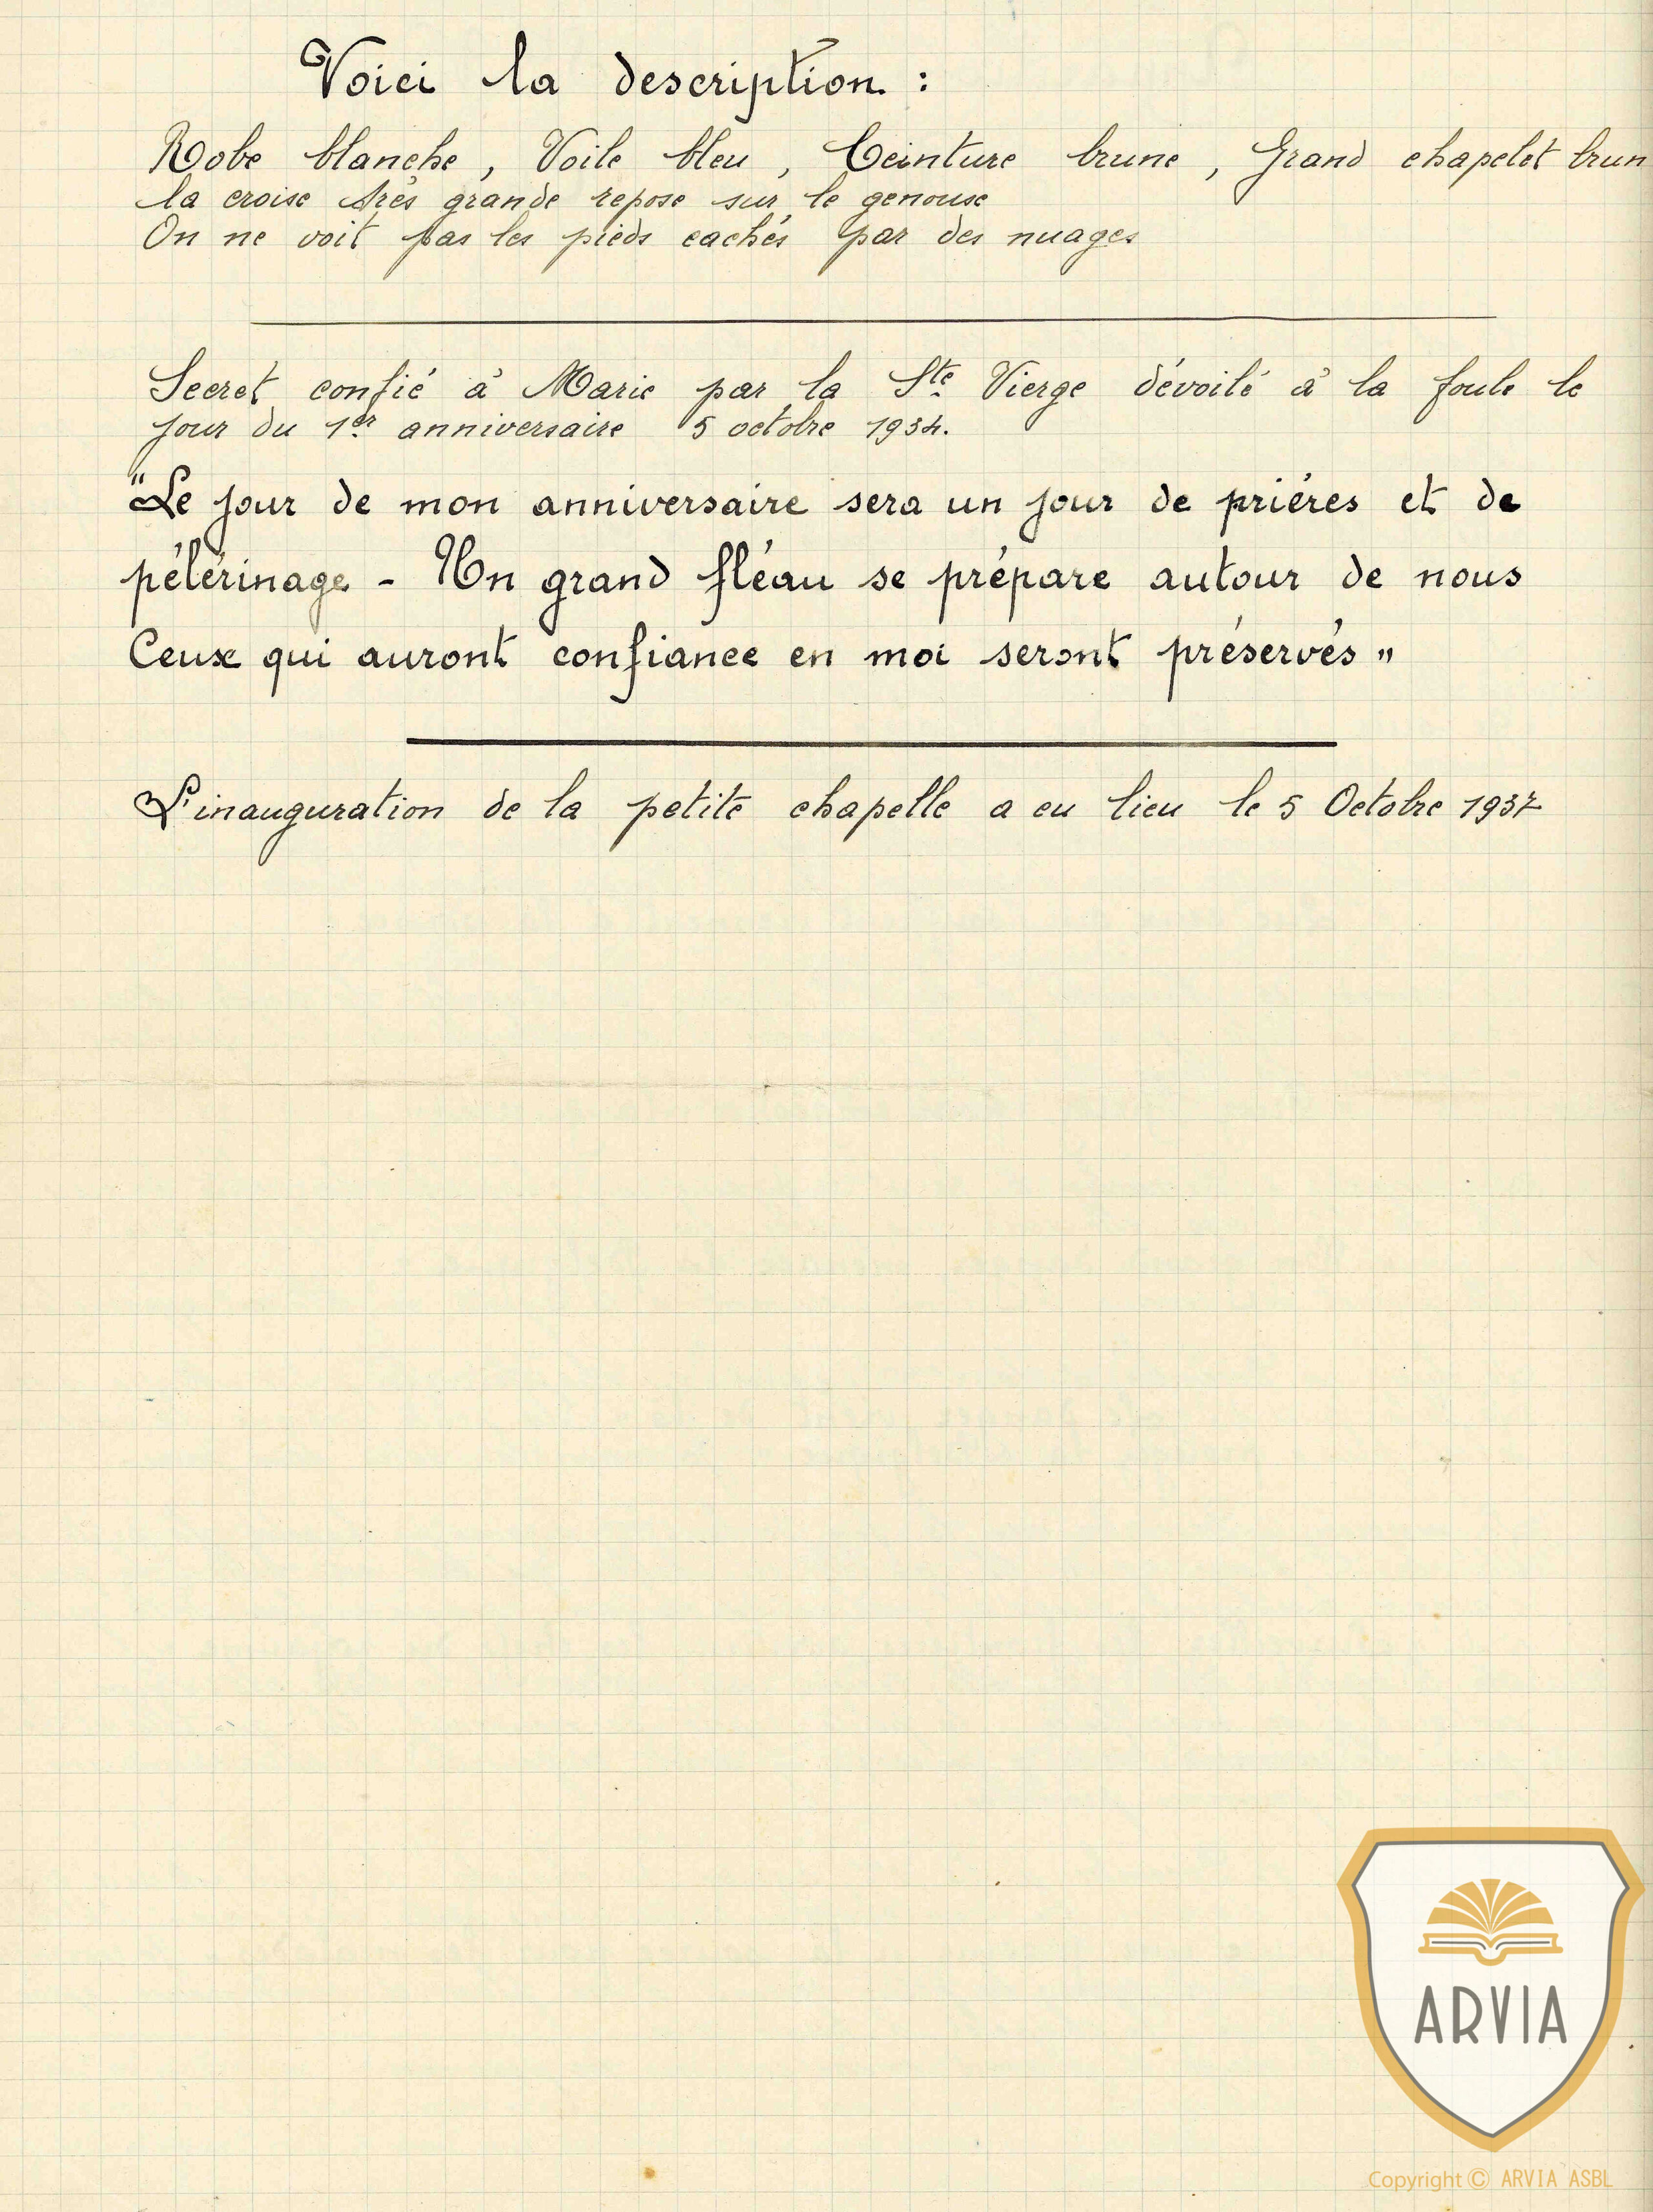 Voici la description :
Robe blanche , Voile bleu , Ceinture brune , Grand chapelet brun
la croix très grande repose sur le genoux
On ne voit pas les pieds cachés par des nuages
Secret confié à Marie par la Ste Vierge dévoilé à la foule le
jour du 1er anniversaire 5 octobre 1934.
"Le jour de mon anniversaire sera un jour de prières et de
pélérinage - Un grand fléau se prépare autour de nous
Ceux qui auront confiance en moi seront préservés "
L'inauguration de la petite chapelle a eu lieu le 5 Octobre 1937
ARVIA
Copyright © ARVIA ASBL